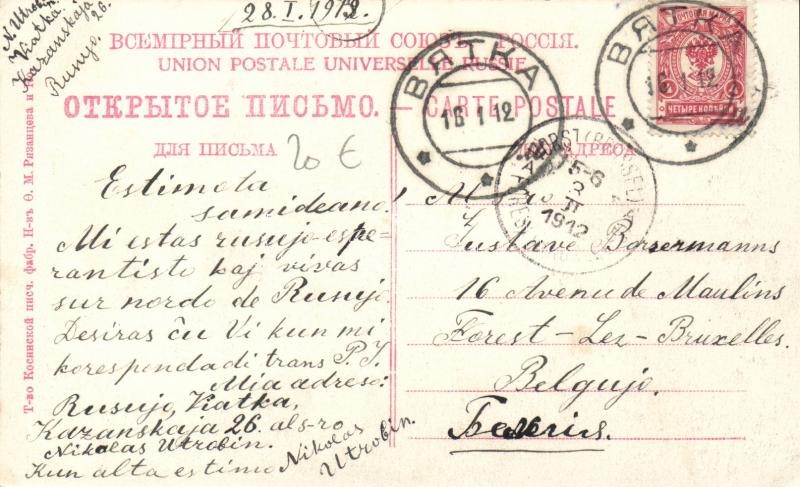 N. Utrobin
Viatka.
Kazanskaja
26.
Rusujo.
28.I.1912.
ВСЕМІРНЫЙ ПОЧТОВЫЙ СОЮЗЪ. РОССІЯ.
UNION POSTALE UNIVERSELLE RUSSIE
ОТКРЫТОЕ ПИСЬМО. — CARTE POSTALE
ДЛЯ ПИСЬМА
АДРЕСА
20 €
ПОЧТОВАЯ МАРКА
ЧЕТЫРЕ КОП
ВЯТКА
16 1 12
ВЯТКА
16 1 12
FOREST (BRUXSEL)
5-6
2 II
1912
Estimata
samideano!
Mi estas rusujo espe-
rantisto kaj vivas
sur nordo de Rusujo.
Deziras ĉu Vi kun mi
korespondadi trans P.I.
Mia adreso:
Rusujo, Viatka,
Kazanskaja 26. als-ro
Nikolas Utrobin.
Kun alta estimo Nikolas
Utrobin.
M-ro
Gustave Borsermanns
16 Avenu de Maulins
Forest-Lez-Bruxelles.
Belgujo.
Бельгія.
Т-во Косинской писч. фабр. Н-въ Ѳ. М. Рязанцева и К